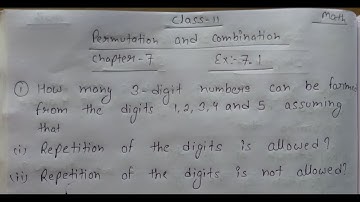 Class-11
Math
Permutation and combination
Chapter-7 Ex:-7.1
① How many 3-digit numbers can be formed
from the digits 1, 2, 3, 4 and 5 assuming
that
(i) Repetition of the digits is allowed?
(ii) Repetition of the digits is not allowed?